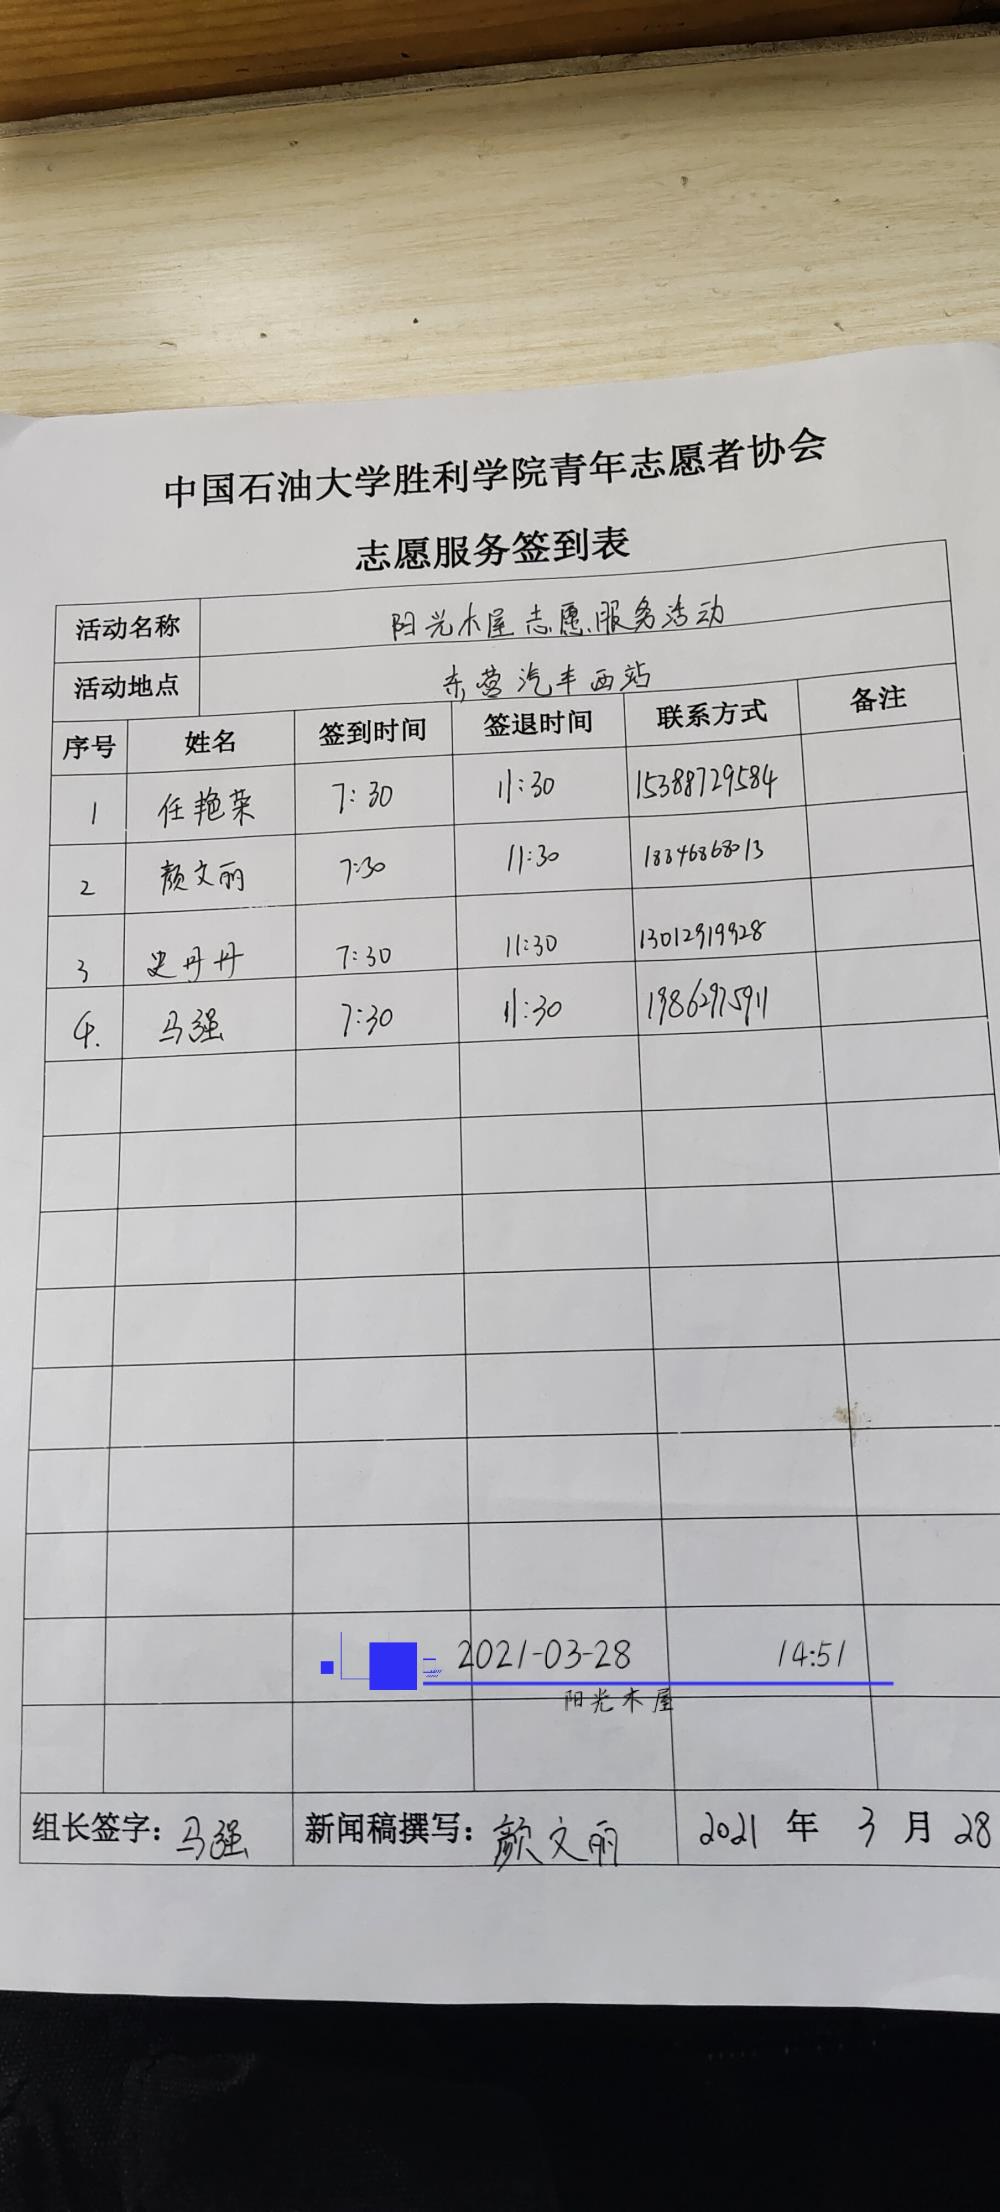 中国石油大学胜利学院青年志愿者协会
志愿服务签到表
活动名称 阳光木屋志愿服务活动
活动地点 东营汽车西站
序号 姓名 签到时间 签退时间 联系方式 备注
1 任艳荣 7:30 11:30 15388729584
2 颜文丽 7:30 11:30 18346868013
3 史丹丹 7:30 11:30 13012919928
4. 马强 7:30 11:30 19862975911
2021-03-28 14:51
阳光木屋
组长签字：马强 新闻稿撰写：颜文丽 2021 年 3 月 28